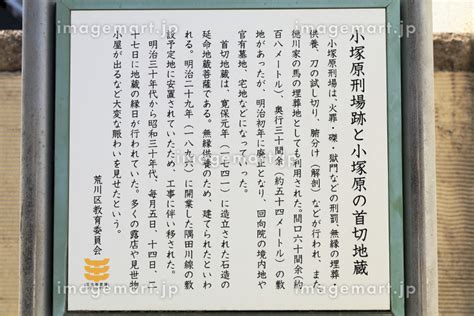 小塚原刑場跡と小塚原の首切地蔵
小塚原刑場は、火罪・磔・獄門などの刑罰、無縁の埋葬・
供養、刀の試し切り、腑分け（解剖）などが行われ、また
徳川家の馬の埋葬地としても利用された。間口六十間余（約
百八メートル）、奥行三十間余（約五十四メートル）の敷
地があったが、明治初年に廃止となり、回向院の境内地や
官有墓地、宅地などになっていった。
首切地蔵は、寛保元年（一七四一）に造立された石造の
延命地蔵菩薩である。無縁供養のため、建てられたといわ
れる。明治二十九年（一八九六）に開業した隅田川線の敷
設予定地に安置されていたため、工事に伴い移された。
明治三十年代から昭和三十年代、毎月五日、十四日、二
十七日に地蔵の縁日が行われていた。多くの露店や見世物
小屋が出るなど大変な賑わいを見せたという。
荒川区教育委員会
imagemart.jp
imagemart.jp
imagemart.jp
imagemart.jp
imagemart.jp
imagemart.jp